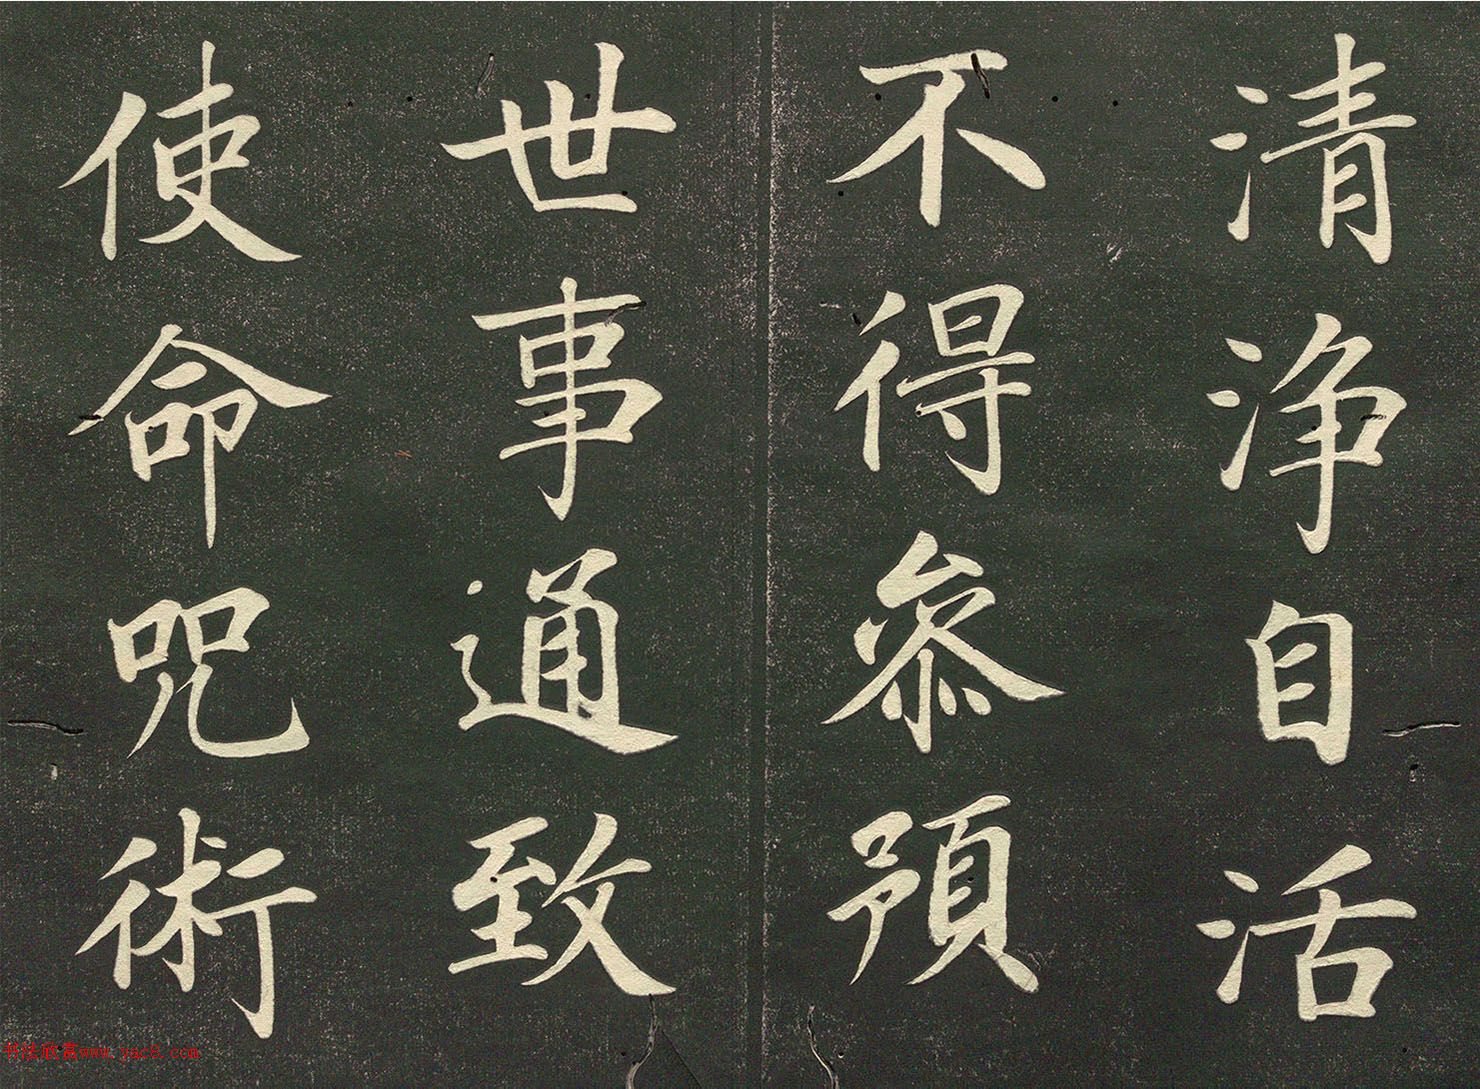 清浄自活
不得參預
世事通致
使命咒術
书法欣赏www.yac8.com